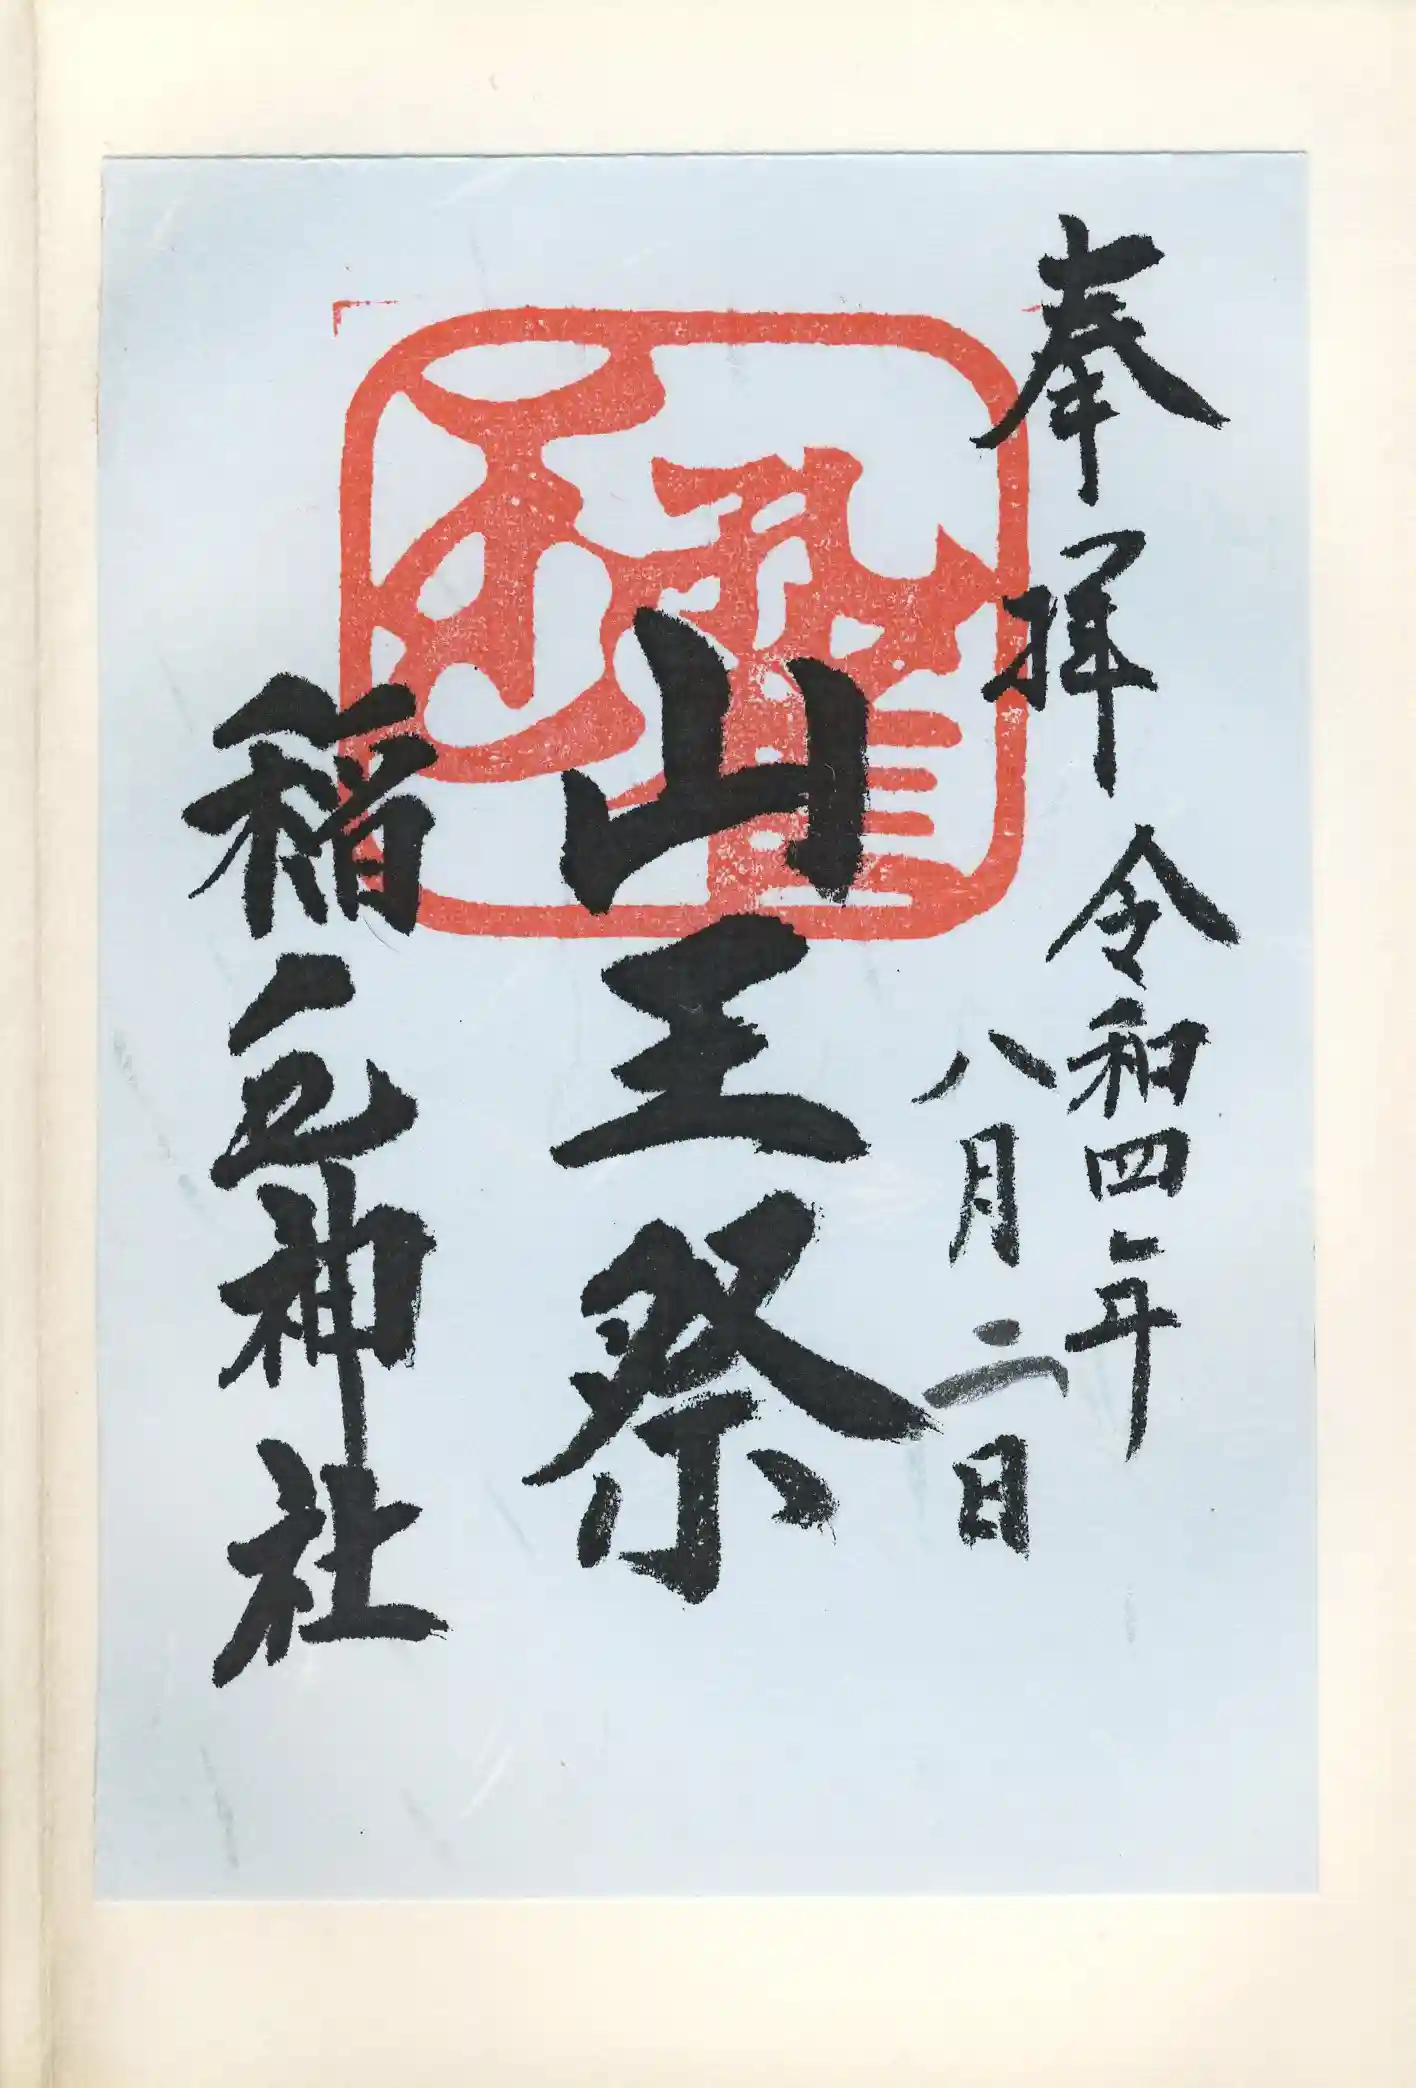 奉拝 令和四年
八月二日
山王祭
稲毛神社